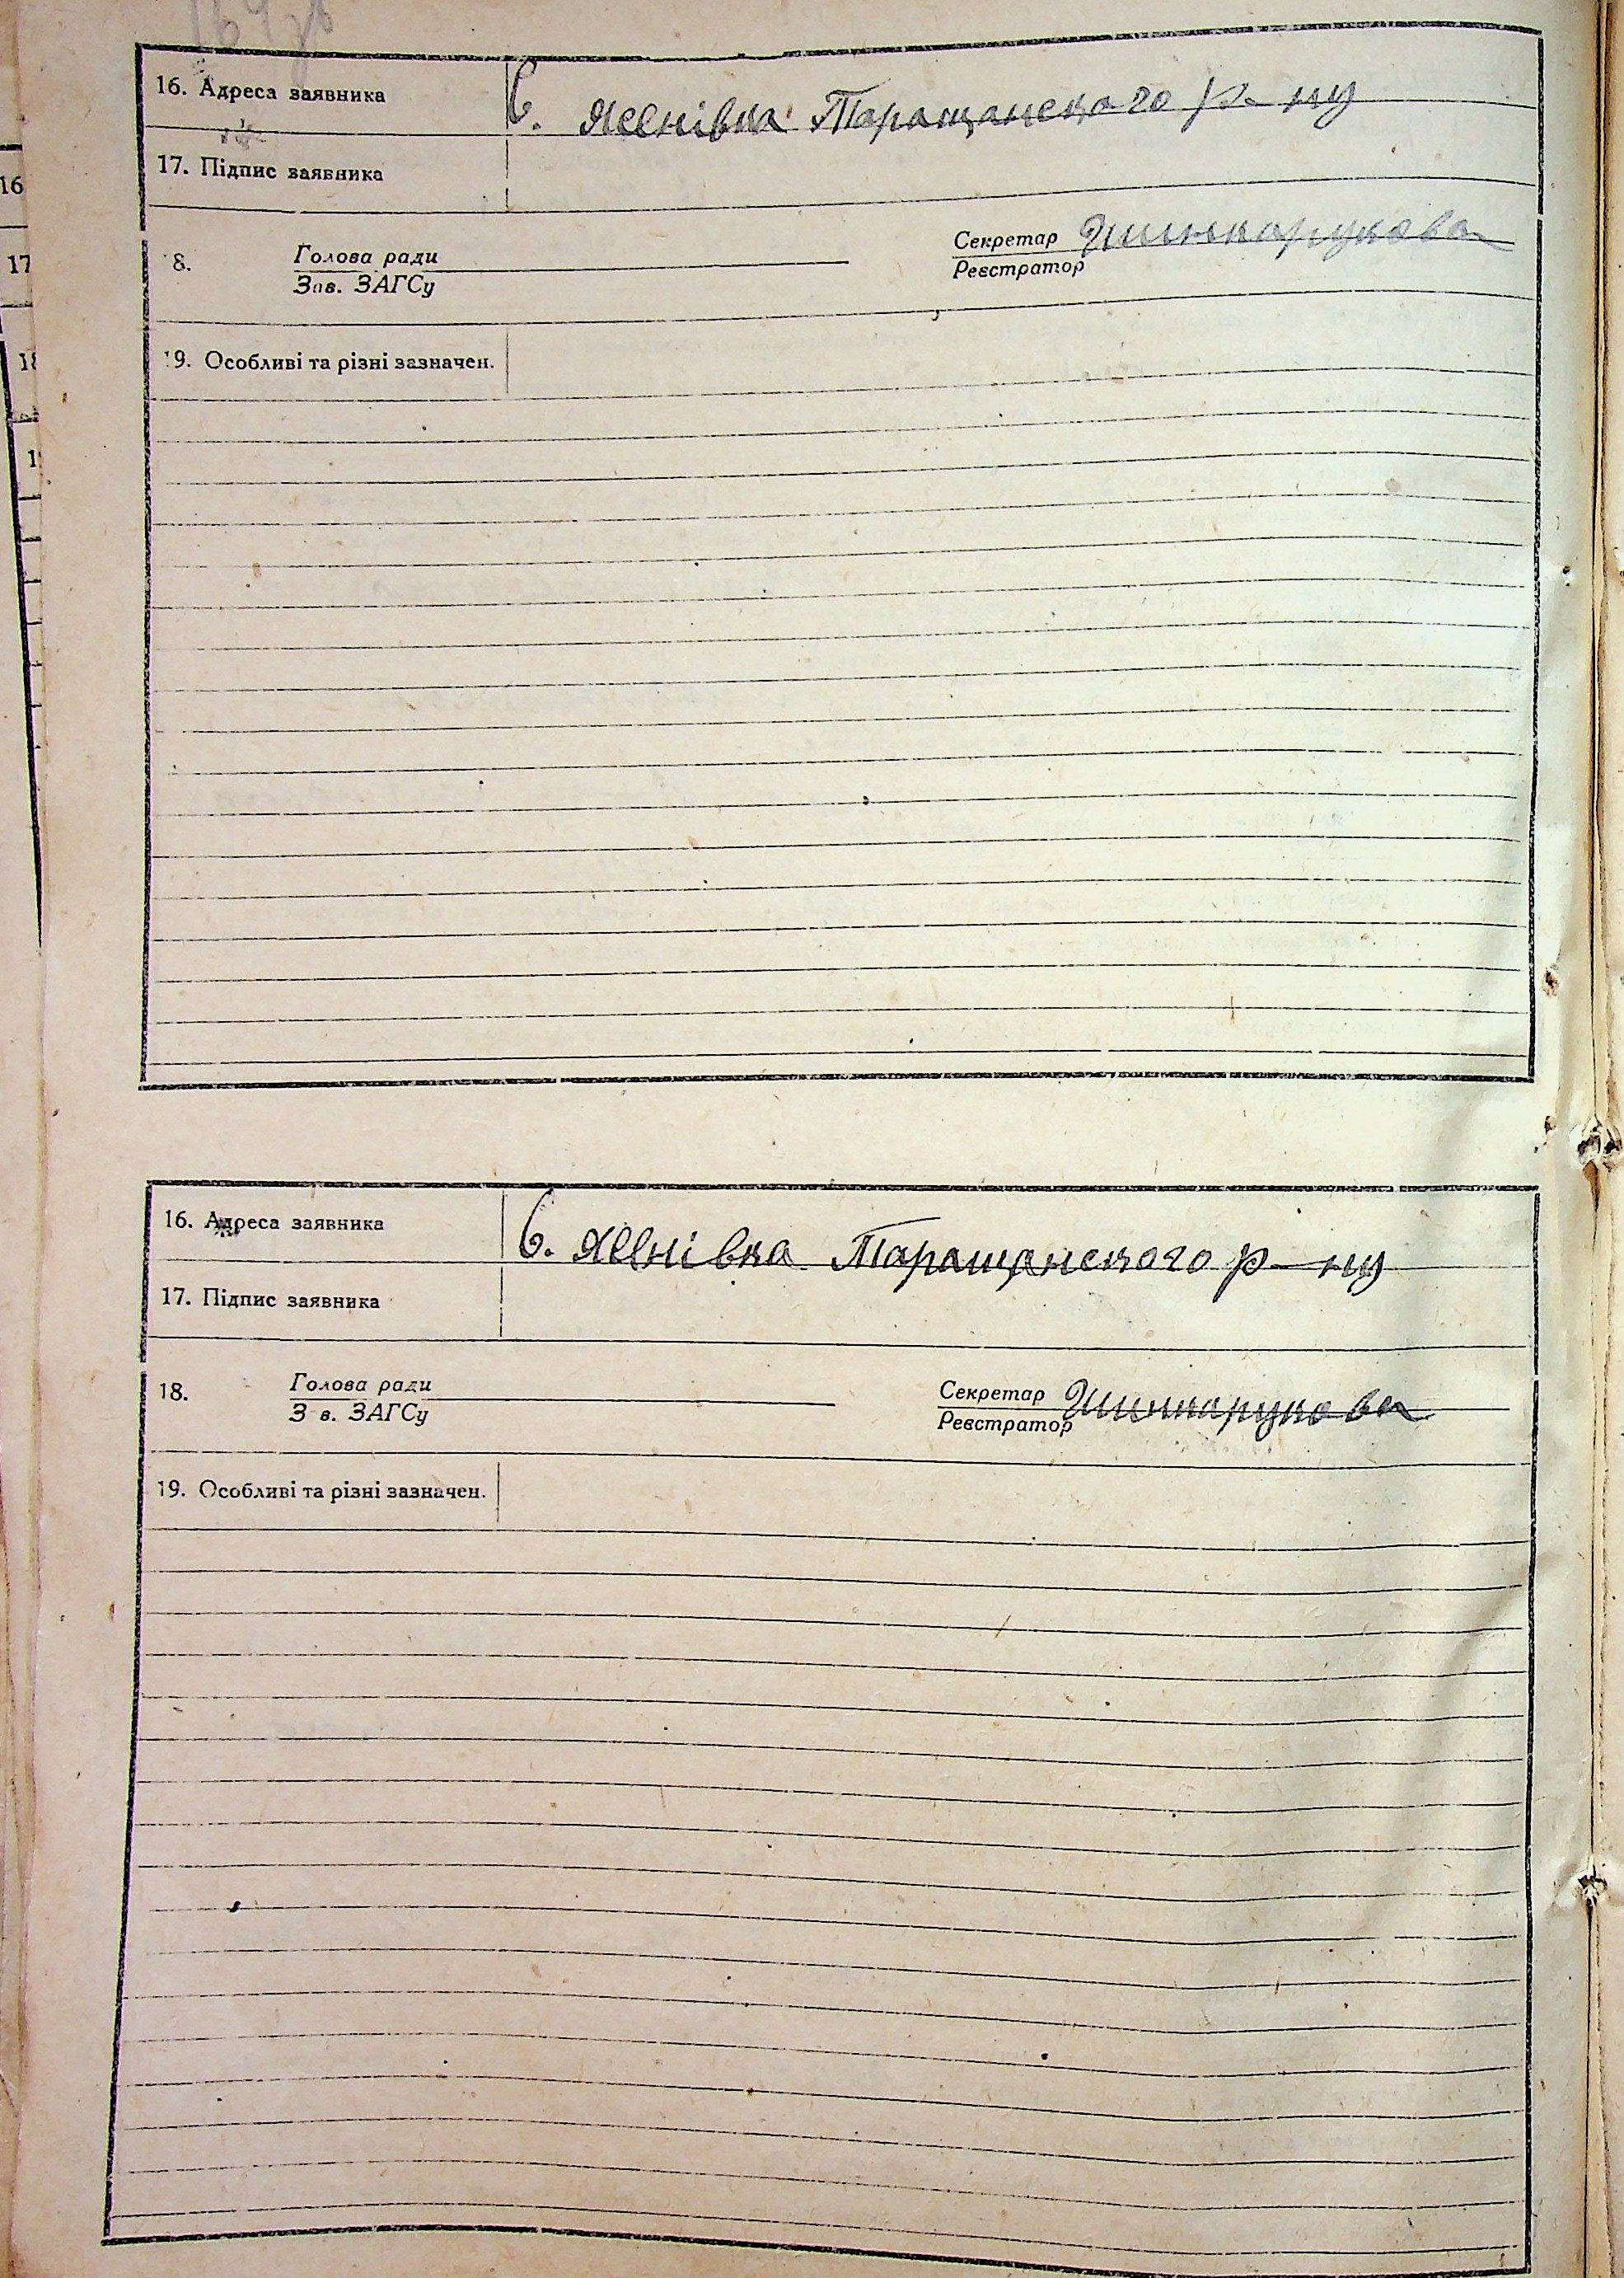 16. Адреса заявника С. Яснівка Таращанского р-ну
17. Підпис заявника
18. Голова ради
Зав. ЗАГСу
Секретар Шинкарукова
Реєстратор
19. Особливі та різні зазначен.
16. Адреса заявника С. Яснівка Таращанского р-ну
17. Підпис заявника
18. Голова ради
Зав. ЗАГСу
Секретар Шинкарукова
Реєстратор
19. Особливі та різні зазначен.